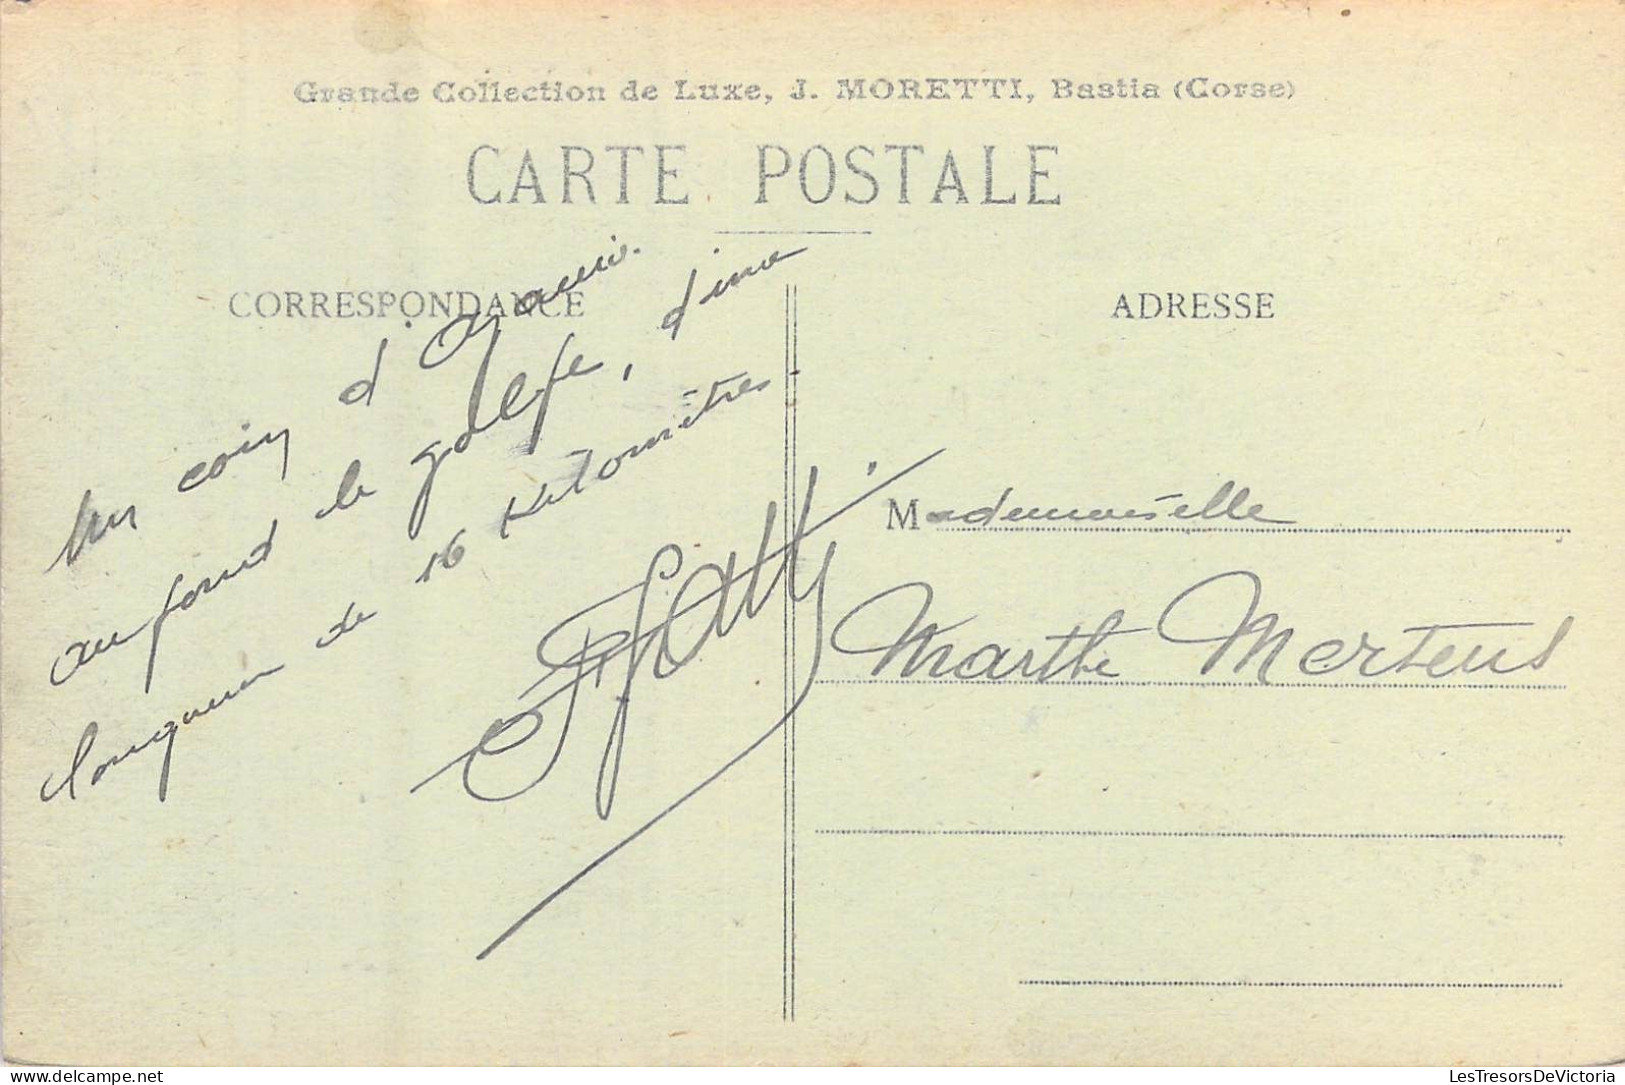 Grande Collection de Luxe, J. MORETTI, Bastia (Corse)
CARTE POSTALE
CORRESPONDANCE
Un coin d'Ajaccio.
au fond le golfe, d'une
longueur de 16 Kilomètres.
ADRESSE
Mademoiselle
Marthe Mertens
LesTresorsDeVictoria